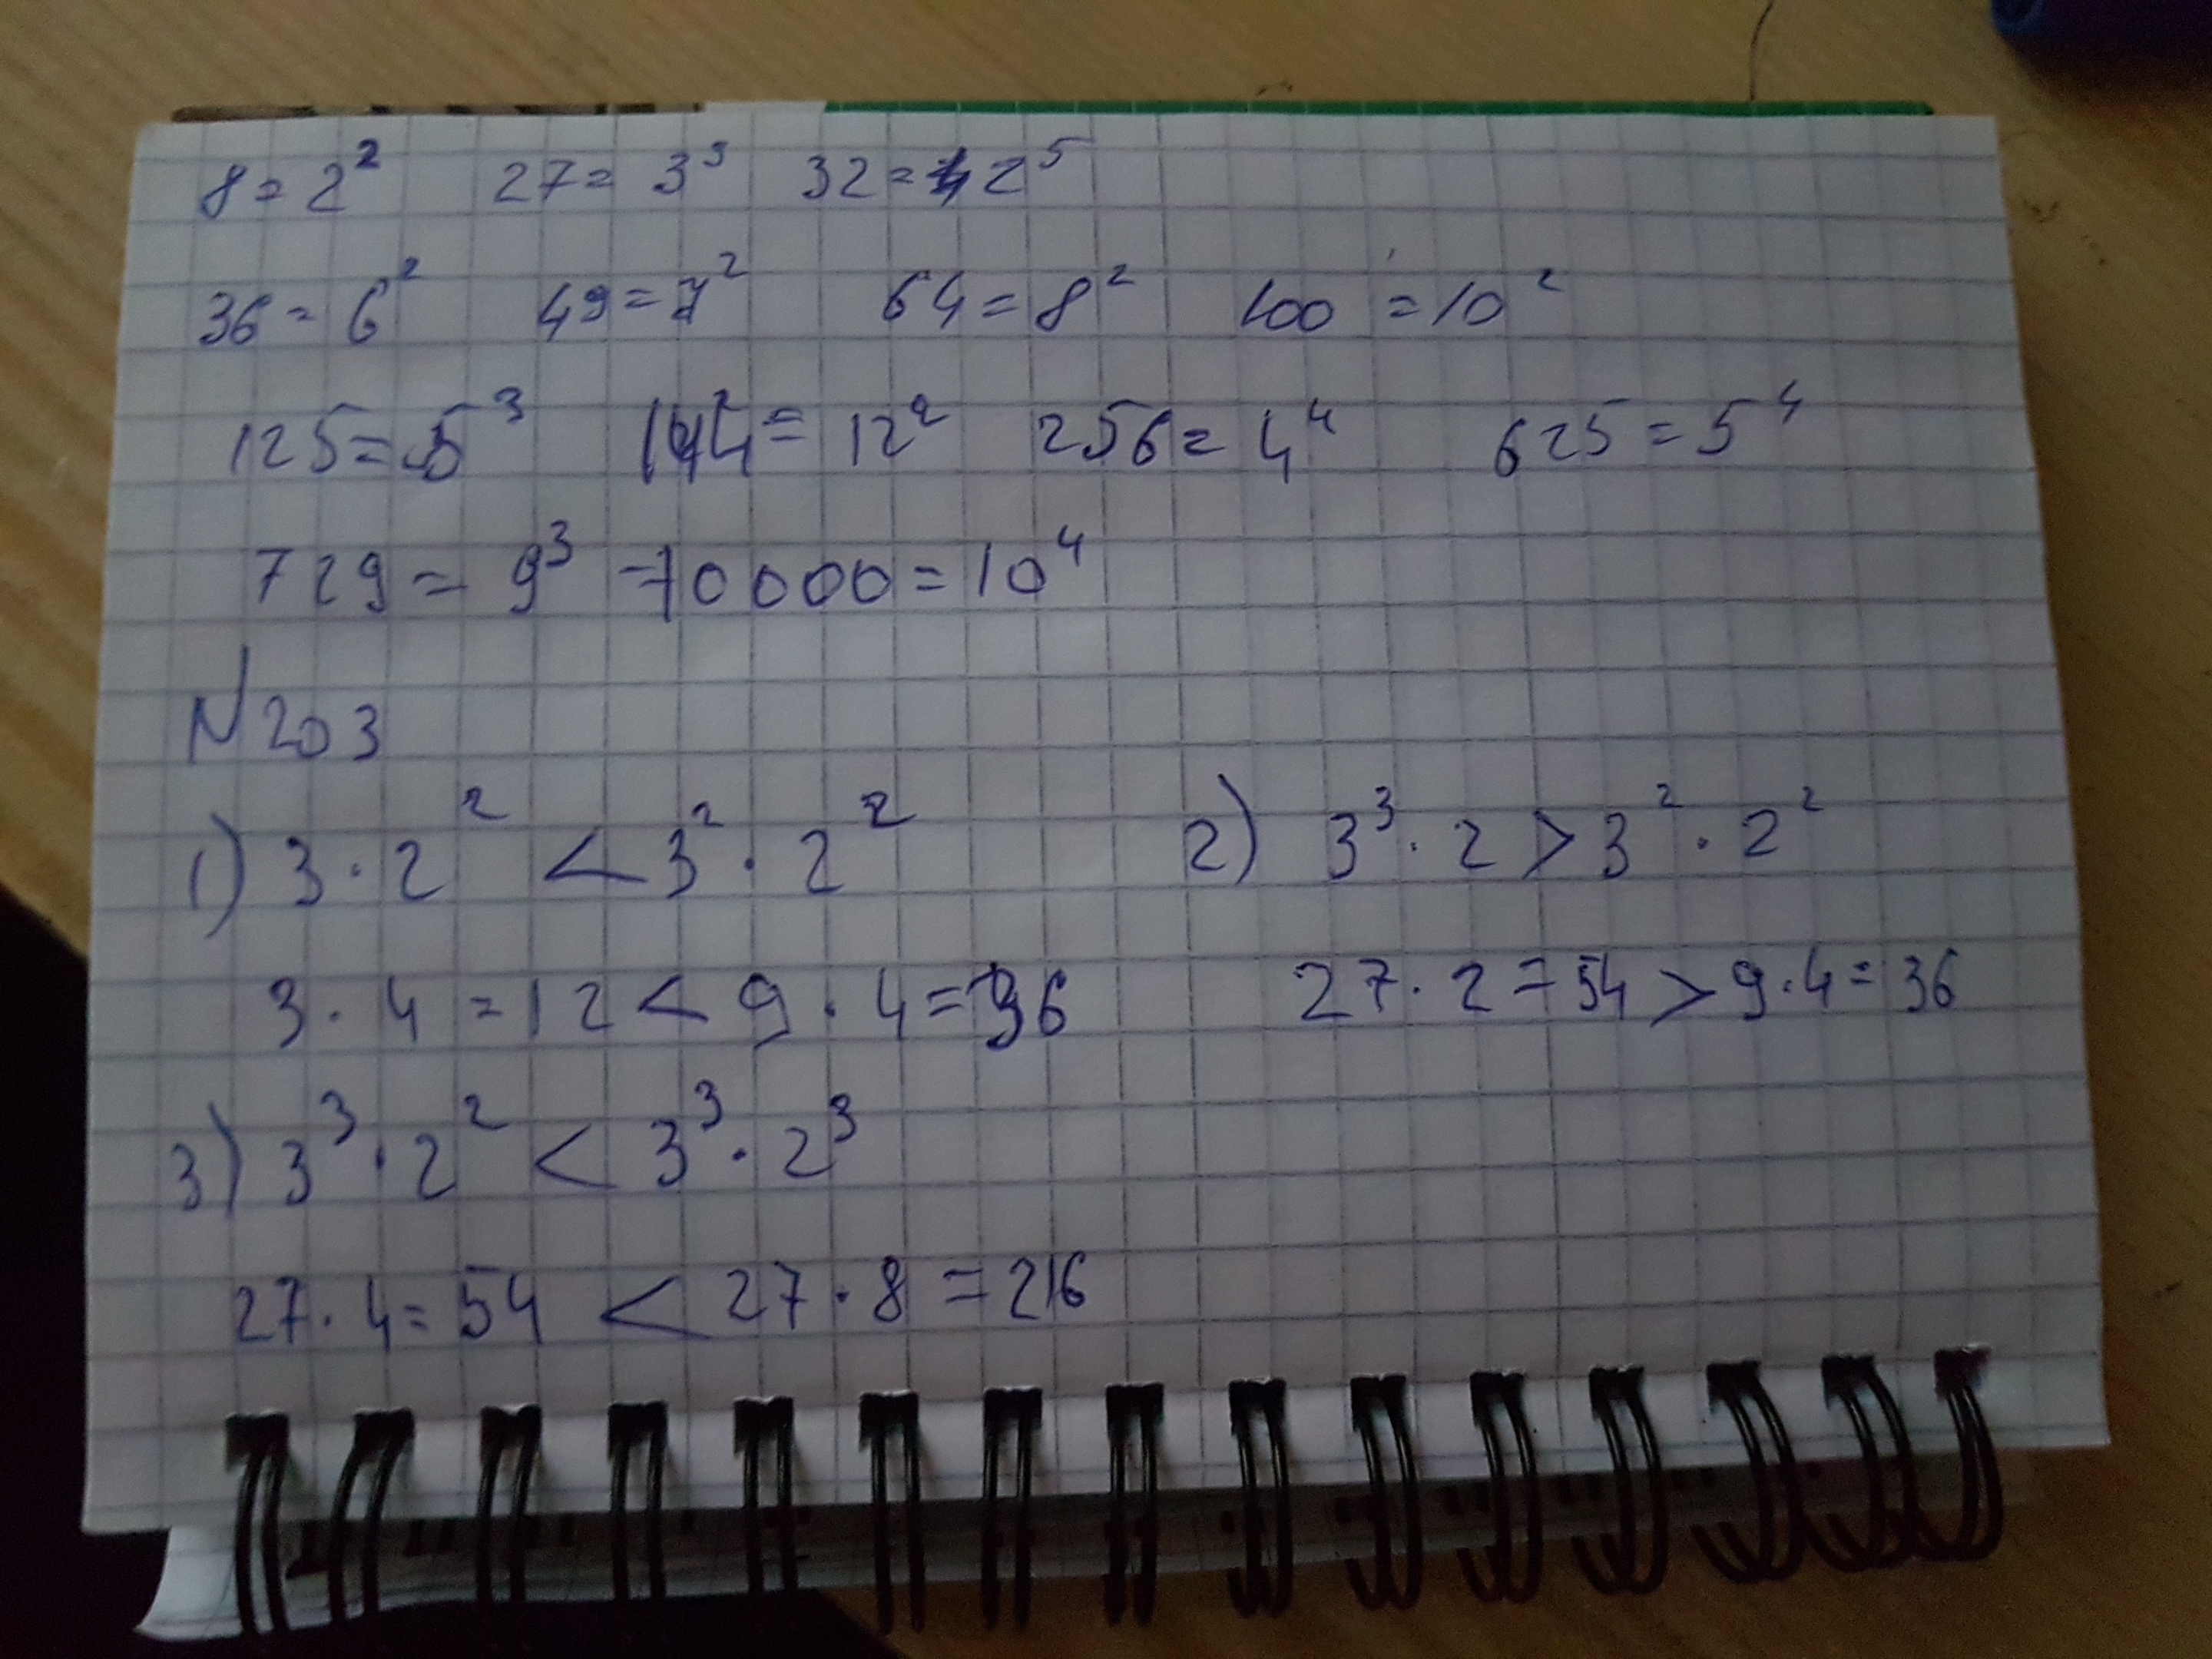 8 = 2² 27 = 3³ 32 = 2⁵
36 = 6² 49 = 7² 64 = 8² 100 = 10²
125 = 5³ 144 = 12² 256 = 4⁴ 625 = 5⁴
729 = 9³ 10000 = 10⁴
N203
1) 3 · 2² < 3² · 2² 2) 3³ · 2 > 3² · 2²
3 · 4 = 12 < 9 · 4 = 36 27 · 2 = 54 > 9 · 4 = 36
3) 3³ · 2² < 3³ · 2³
27 · 4 = 54 < 27 · 8 = 216